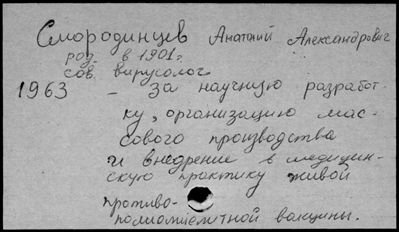 Смородинцев Анатолий Александрович
род. в 1901г.
сов. вирусолог
1963 – За научную разработ-
ку, организацию мас-
сового производства
и внедрение в медицин-
скую практику живой
противо-
полиомиелитной вакцины.